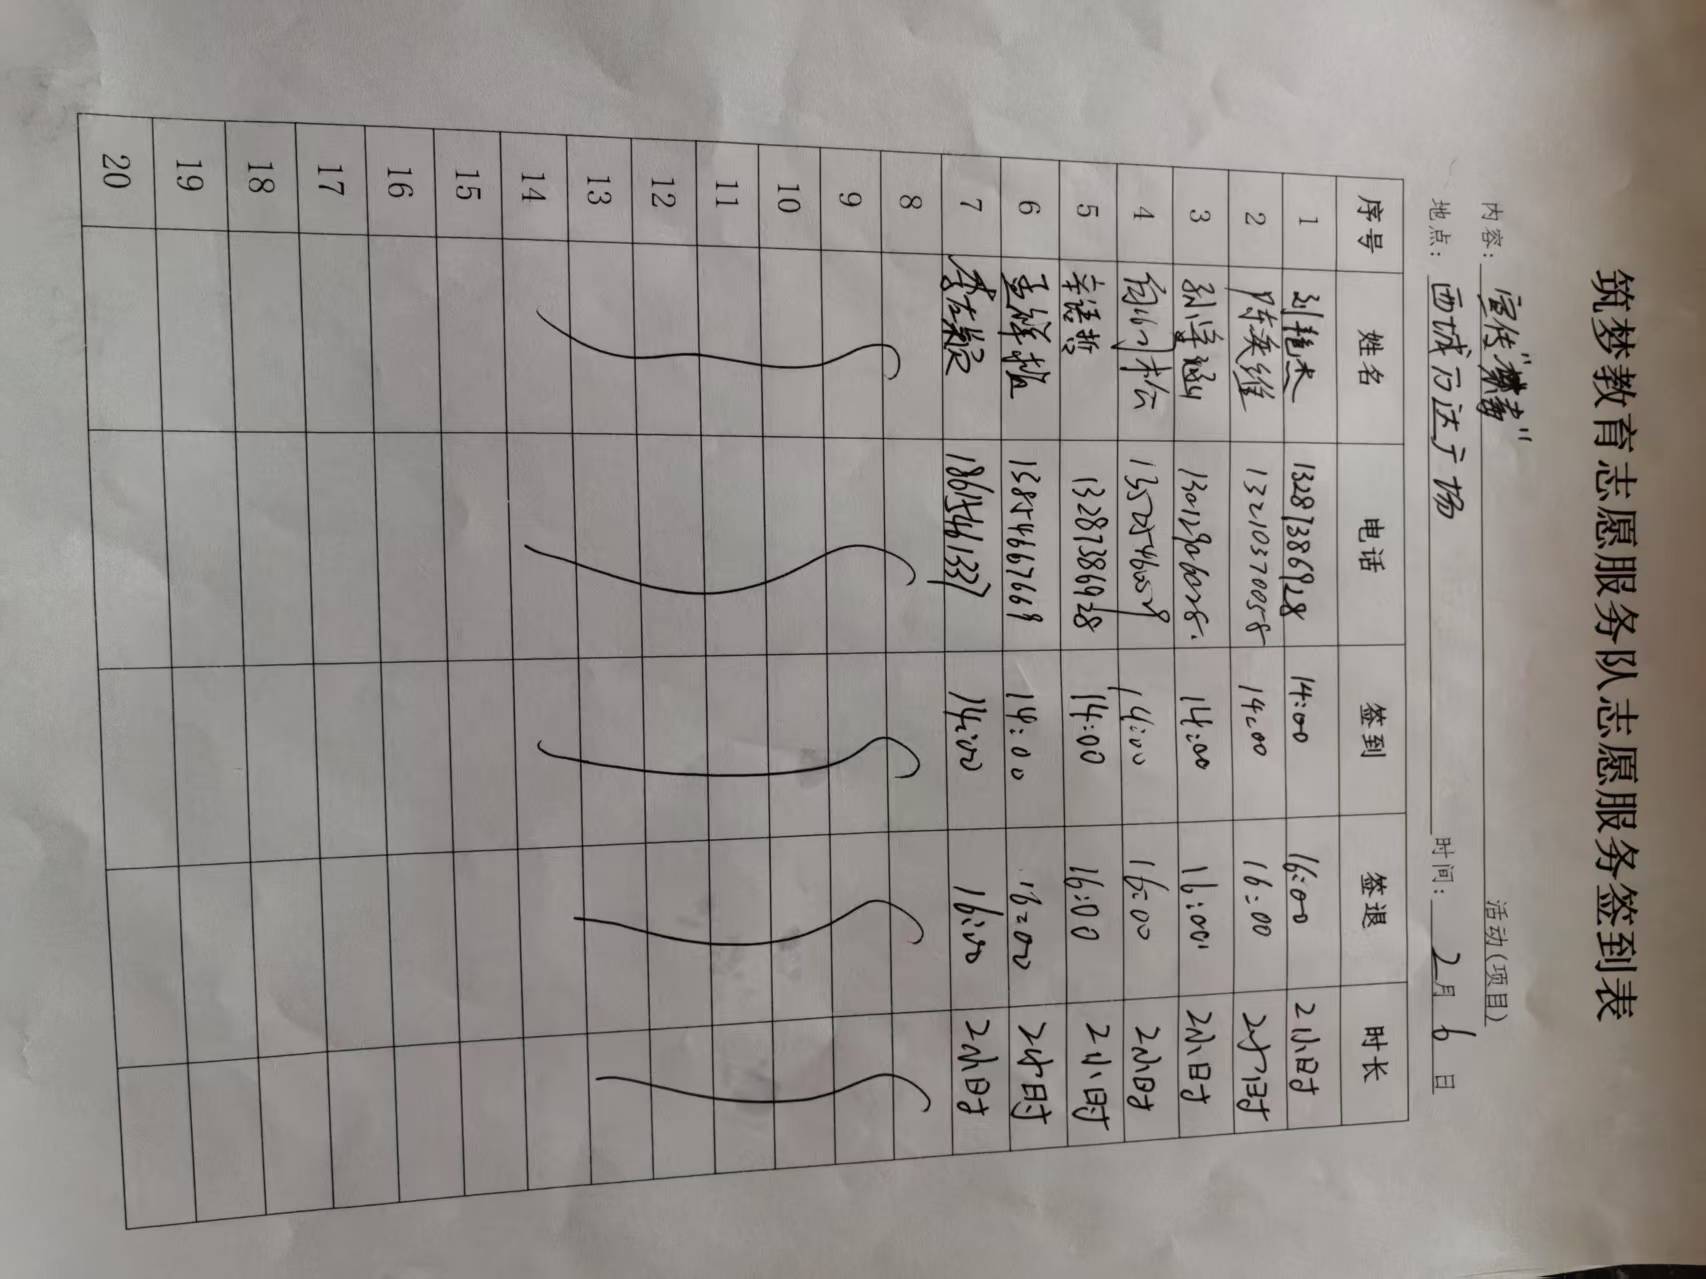 筑梦教育志愿服务队志愿服务签到表
内容：宣传"禁毒" 活动(项目)
地点：西城万达广场 时间：2月6日
序号 姓名 电话 签到 签退 时长
1 刘艳杰 13287386928 14:00 16:00 2小时
2 陈奕维 13210370058 14:00 16:00 2小时
3 孙学涵 13012906028 14:00 16:00 2小时
4 14:00 16:00 2小时
5 13287386928 14:00 16:00 2小时
6 孟祥 13854667669 14:00 16:00 2小时
7 18615461337 14:00 16:00 2小时
8
9
10
11
12
13
14
15
16
17
18
19
20